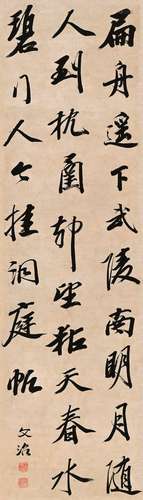 扁舟遥下武陵南明月随
人到枕函却望粘天春水
碧门人今挂洞庭帆
文治